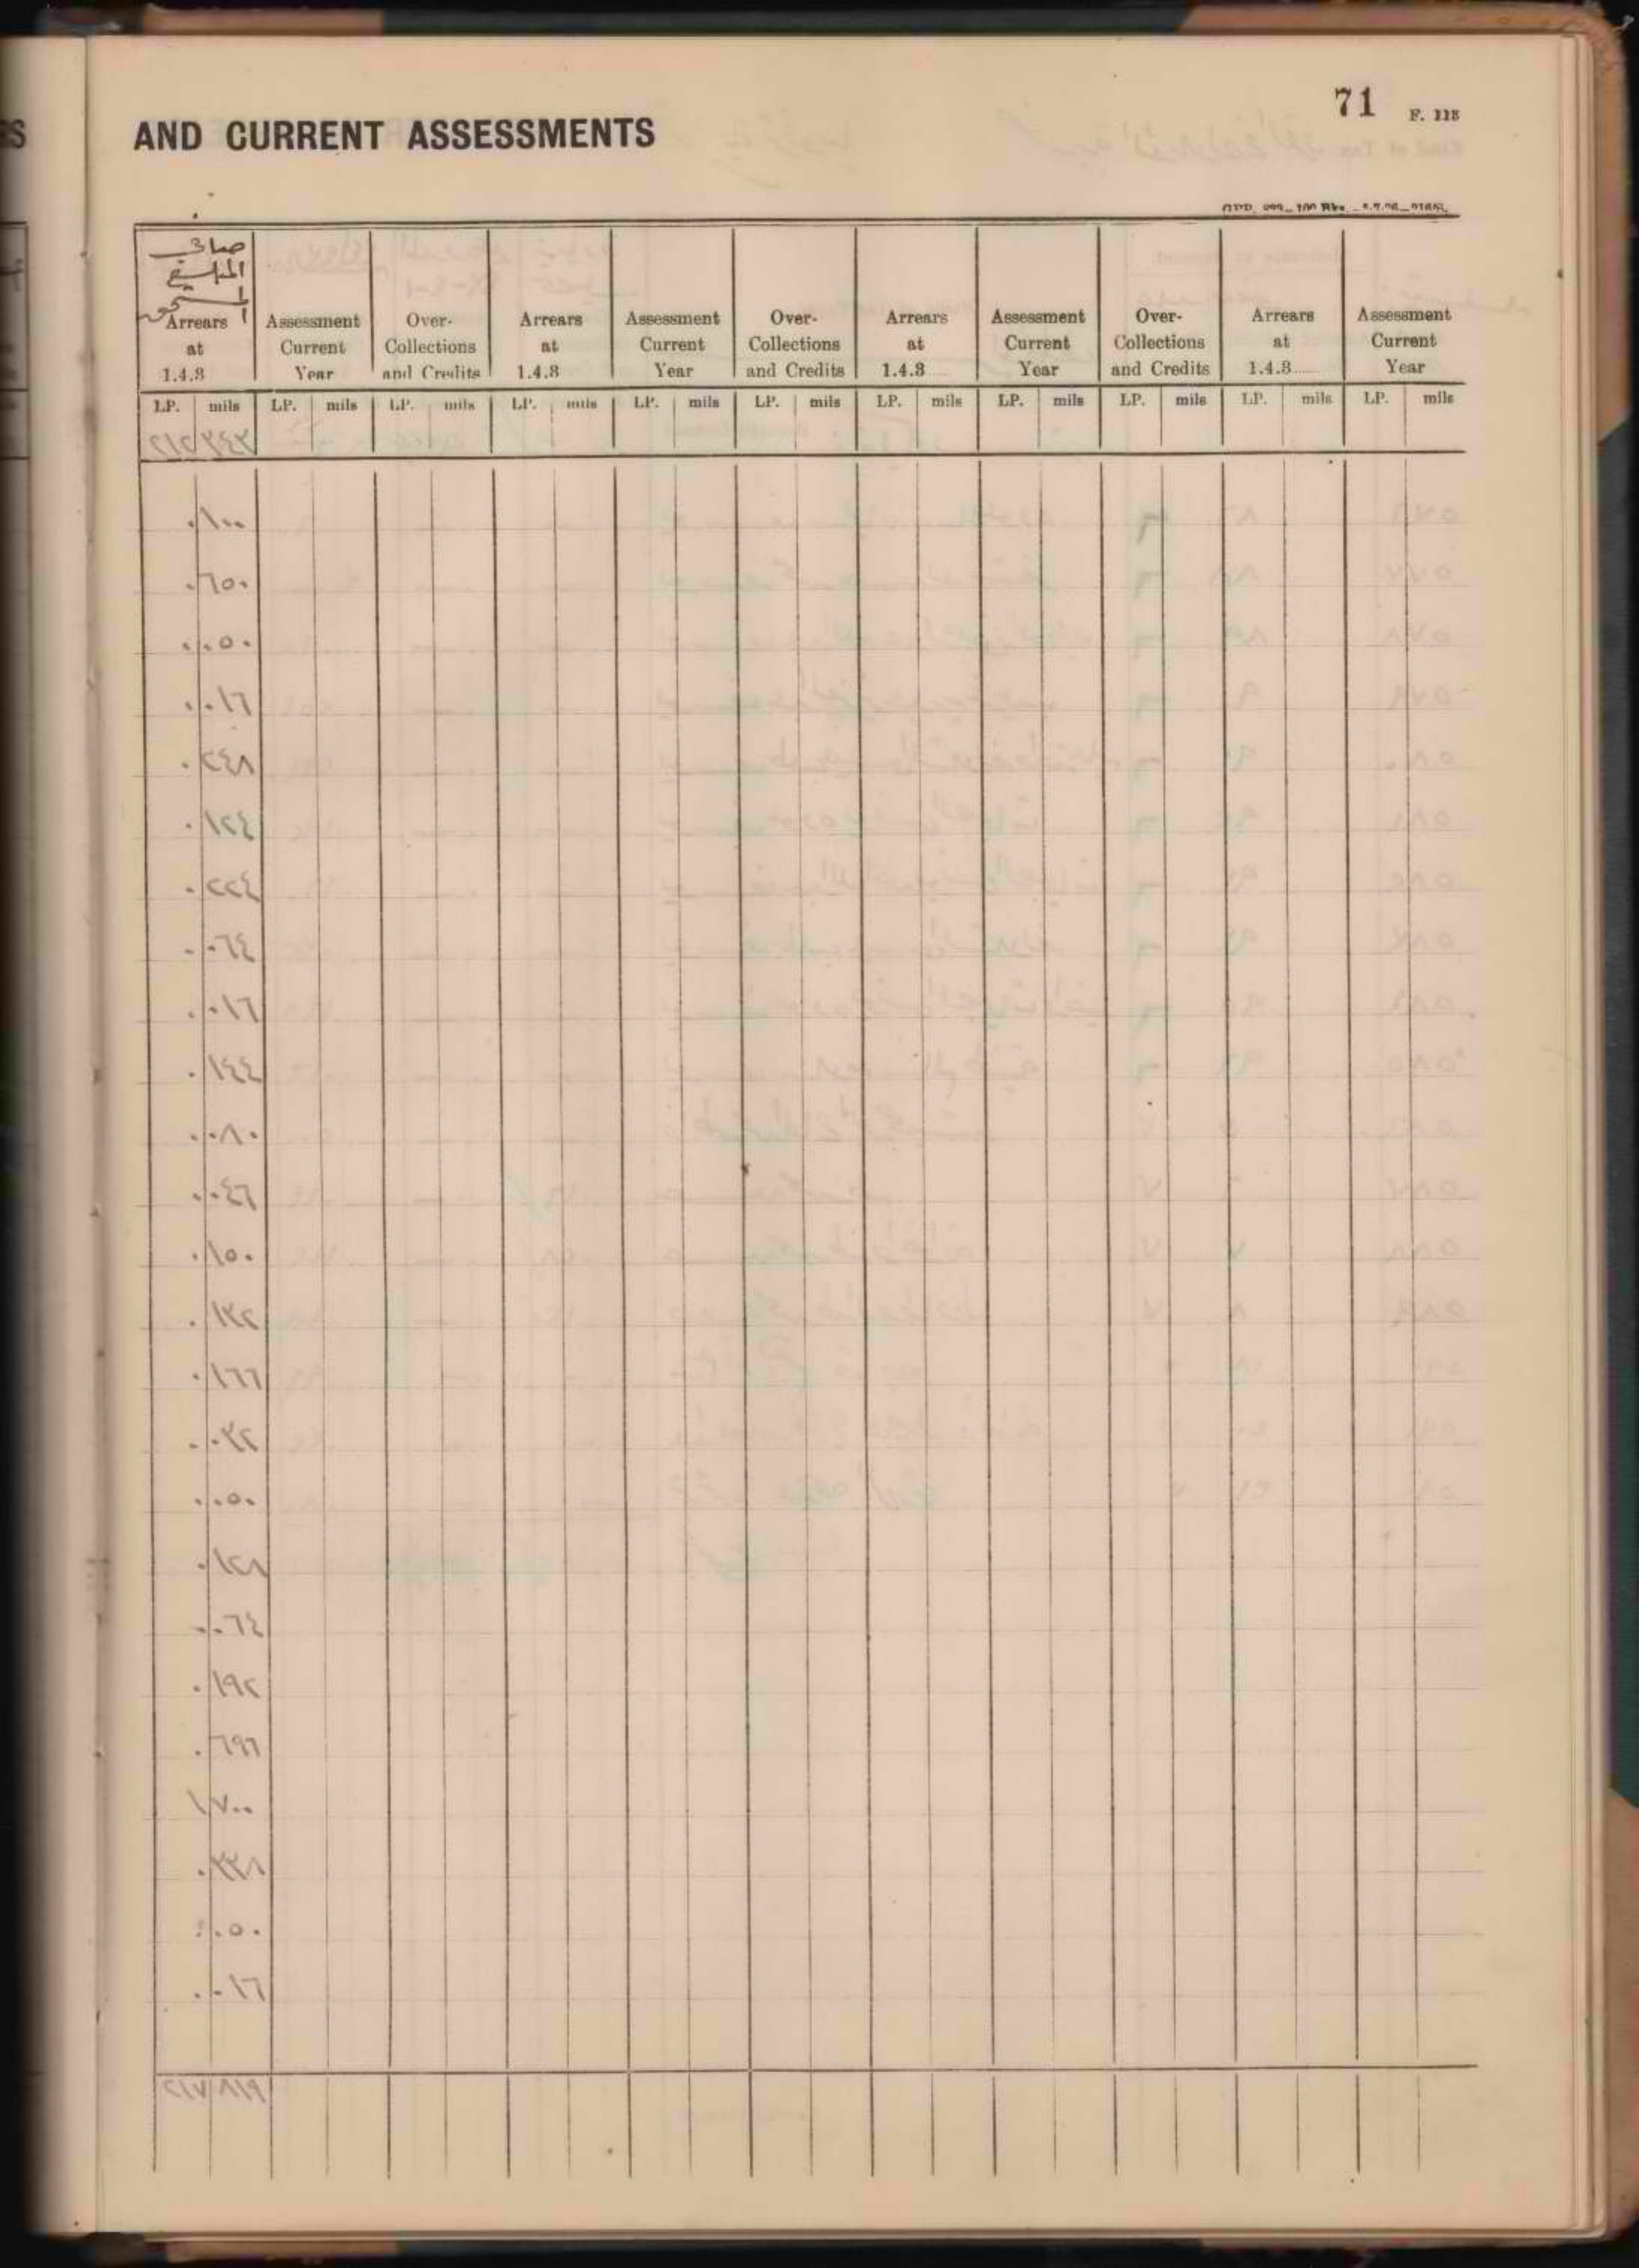 71 F. 118
AND CURRENT ASSESSMENTS
صافي
المبلغ
المستحق
Arrears at 1.4.3 | Assessment Current Year | Over-Collections and Credits | Arrears at 1.4.3 | Assessment Current Year | Over-Collections and Credits | Arrears at 1.4.3 | Assessment Current Year | Over-Collections and Credits | Arrears at 1.4.3 | Assessment Current Year
LP. mils LP. mils LP. mils LP. mils LP. mils LP. mils LP. mils LP. mils LP. mils LP. mils LP. mils
٢١٢ ٣٤٣
٠ ١٠٠
٠ ٦٥٠
٠ ٠٥٠
٠ ٠١٦
٠ ٢٤٨
٠ ١٢٤
٠ ٢٢٤
٠ ٠٦٤
٠ ٠١٦
٠ ١٤٤
٠ ٠٨٠
٠ ٠٤٦
٠ ١٥٠
٠ ١٣٢
٠ ١٦٦
٠ ٠٣٢
٠ ٠٥٠
٠ ١٢٨
٠ ٠٦٤
٠ ١٩٢
٠ ٦٩٦
١ ٧٠٠
٠ ٣٣٨
٠ ٠٥٠
٠ ٠١٦
٢١٧ ٨١٩